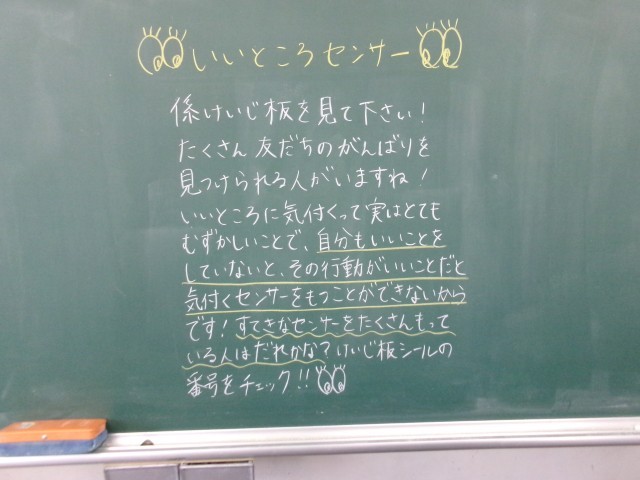 いいところセンサー
係けいじ板を見て下さい!
たくさん友だちのがんばりを
見つけられる人がいますね!
いいところに気付くって実はとても
むずかしいことで、自分もいいことを
していないと、その行動がいいことだと
気付くセンサーをもつことができないから
です!すてきなセンサーをたくさんもって
いる人はだれかな?けいじ板シールの
番号をチェック!!